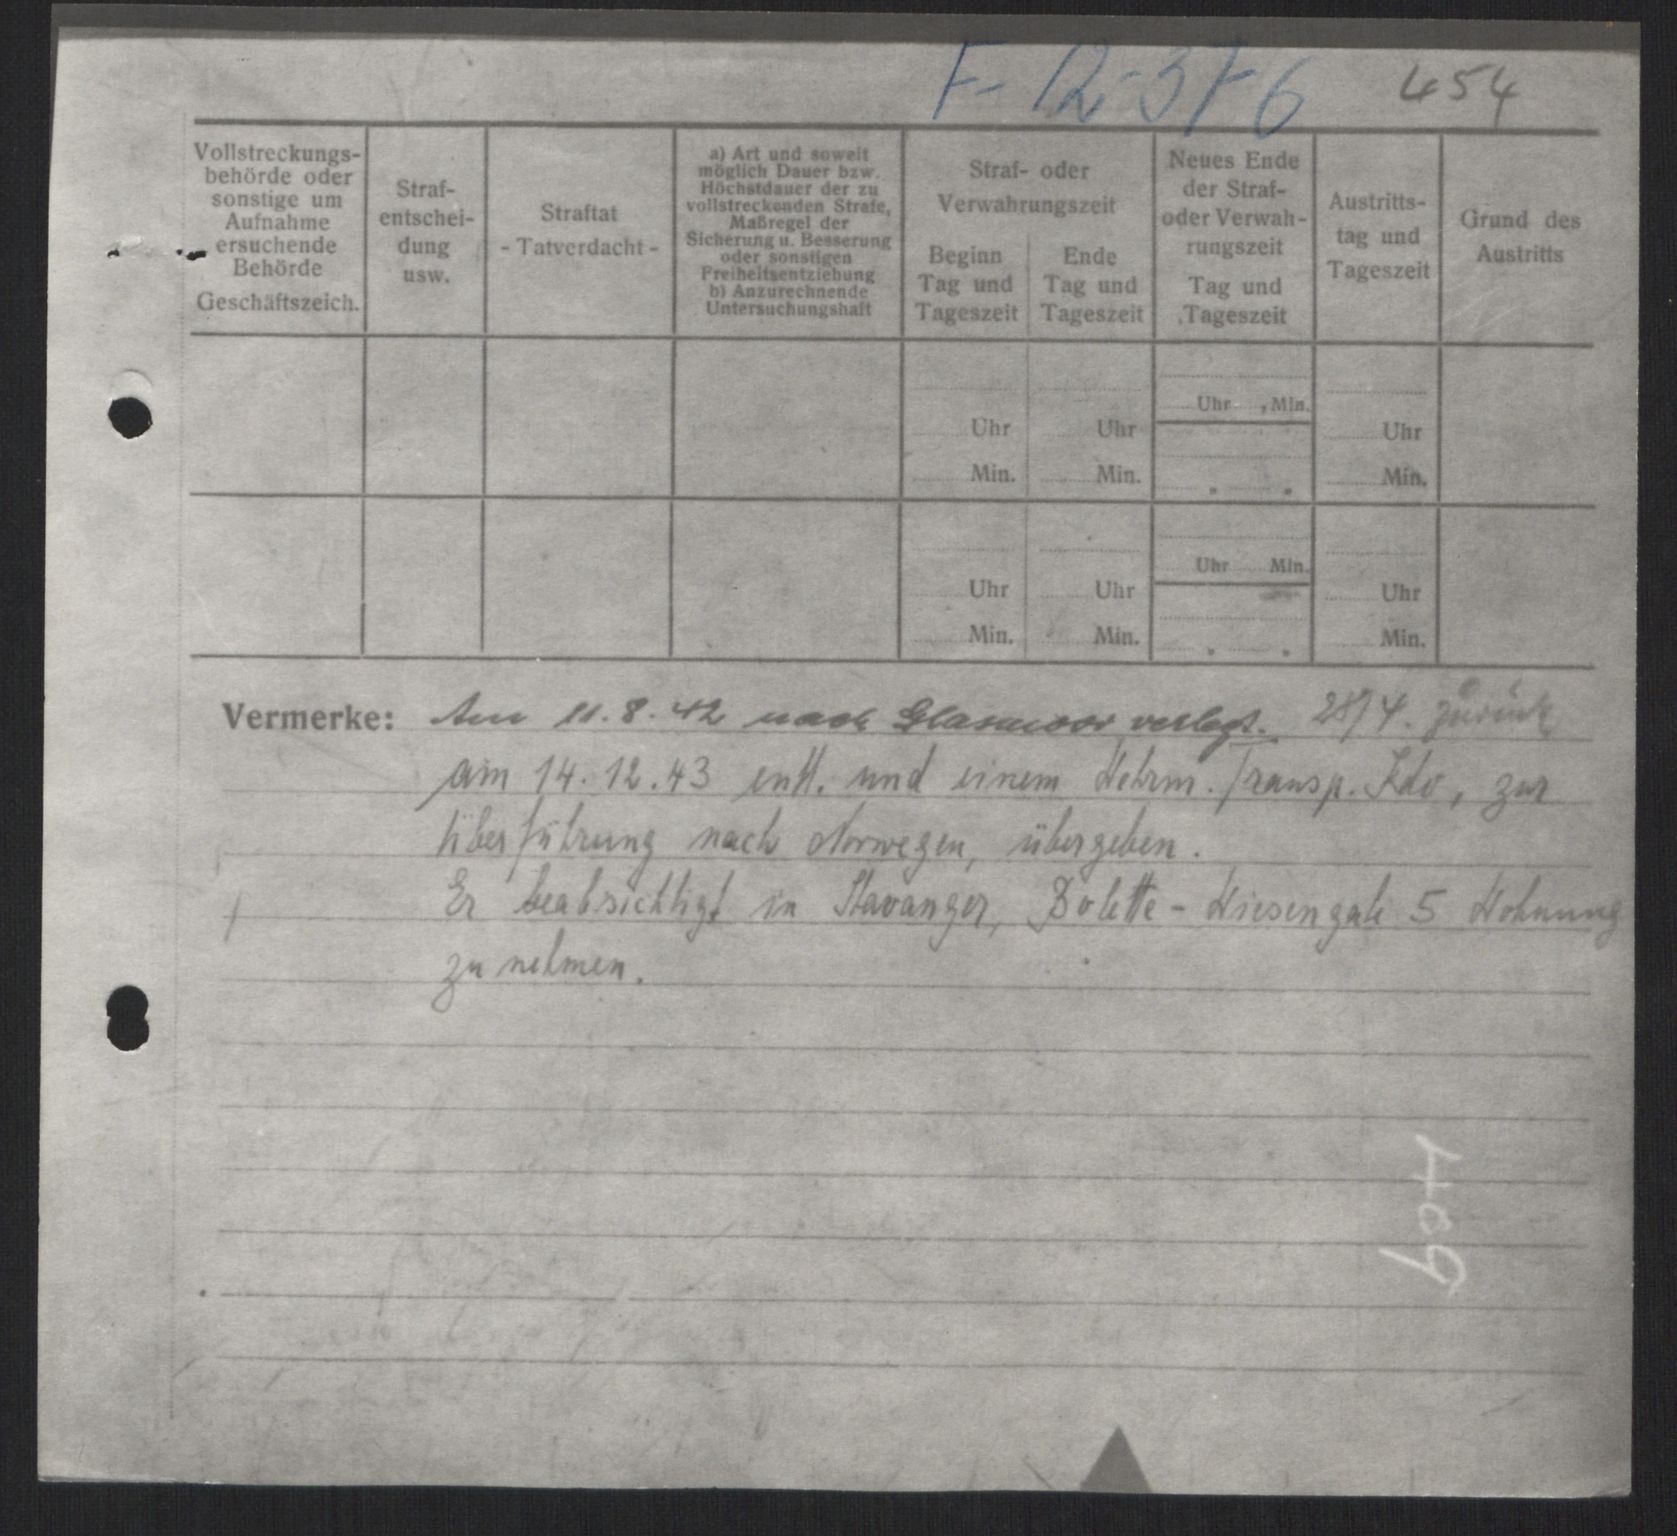 F-12-376 454
Vollstreckungs-
behörde oder
sonstige um
Aufnahme
ersuchende
Behörde
Geschäftszeich.
Straf-
entschei-
dung
usw.
Straftat
- Tatverdacht -
a) Art und soweit
möglich Dauer bzw.
Höchstdauer der zu
vollstreckenden Strafe,
Maßregel der
Sicherung u. Besserung
oder sonstigen
Freiheitsentziehung
b) Anzurechnende
Untersuchungshaft
Straf- oder
Verwahrungszeit
Beginn
Tag und
Tageszeit
Ende
Tag und
Tageszeit
Neues Ende
der Straf-
oder Verwah-
rungszeit
Tag und
Tageszeit
Austritts-
tag und
Tageszeit
Grund des
Austritts
Uhr Min.
Uhr Uhr Uhr
Min. Min. Min.
Uhr Min.
Uhr Uhr Uhr
Min. Min. Min.
Vermerke: Am 11.8.42 nach Glasmoor verlegt. 28/4. zurück
am 14.12.43 entl. und einem Wehrm. Transp. Kdo, zur
Überführung nach Norwegen, übergeben.
Er beabsichtigt in Stavanger, Bolette-Wiesengate 5 Wohnung
zu nehmen.